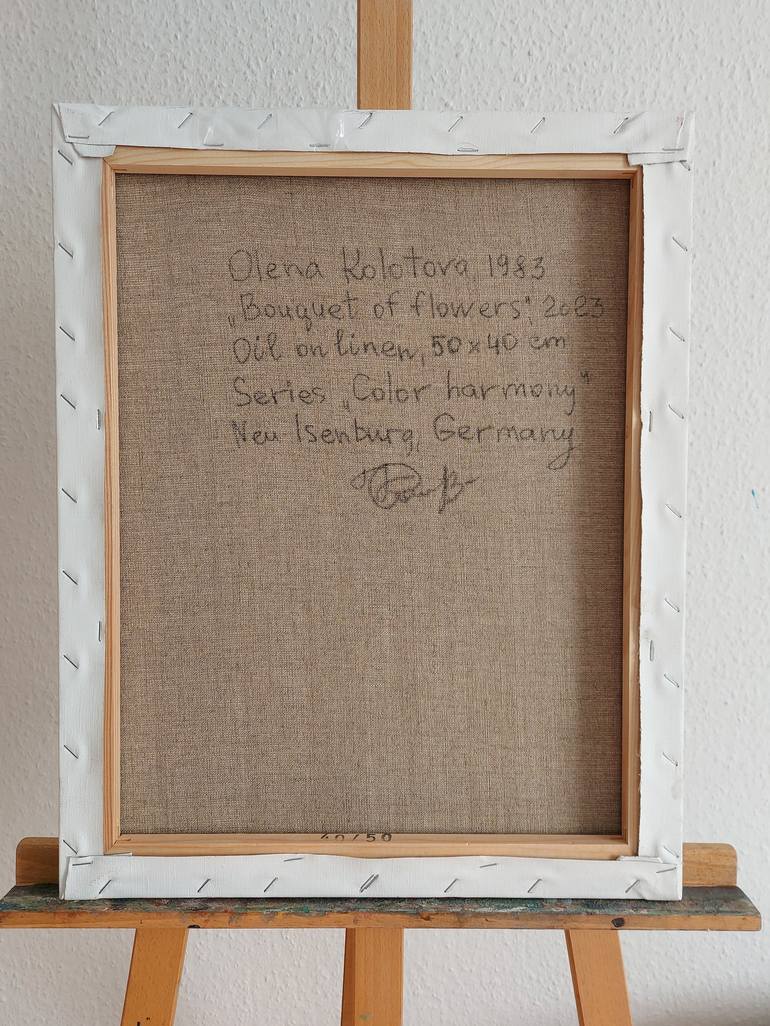 Olena Kolotova, 1983
„Bouquet of flowers", 2023
Oil on linen, 50x40 cm
Series „Color harmony"
Neu-Isenburg, Germany
40/50